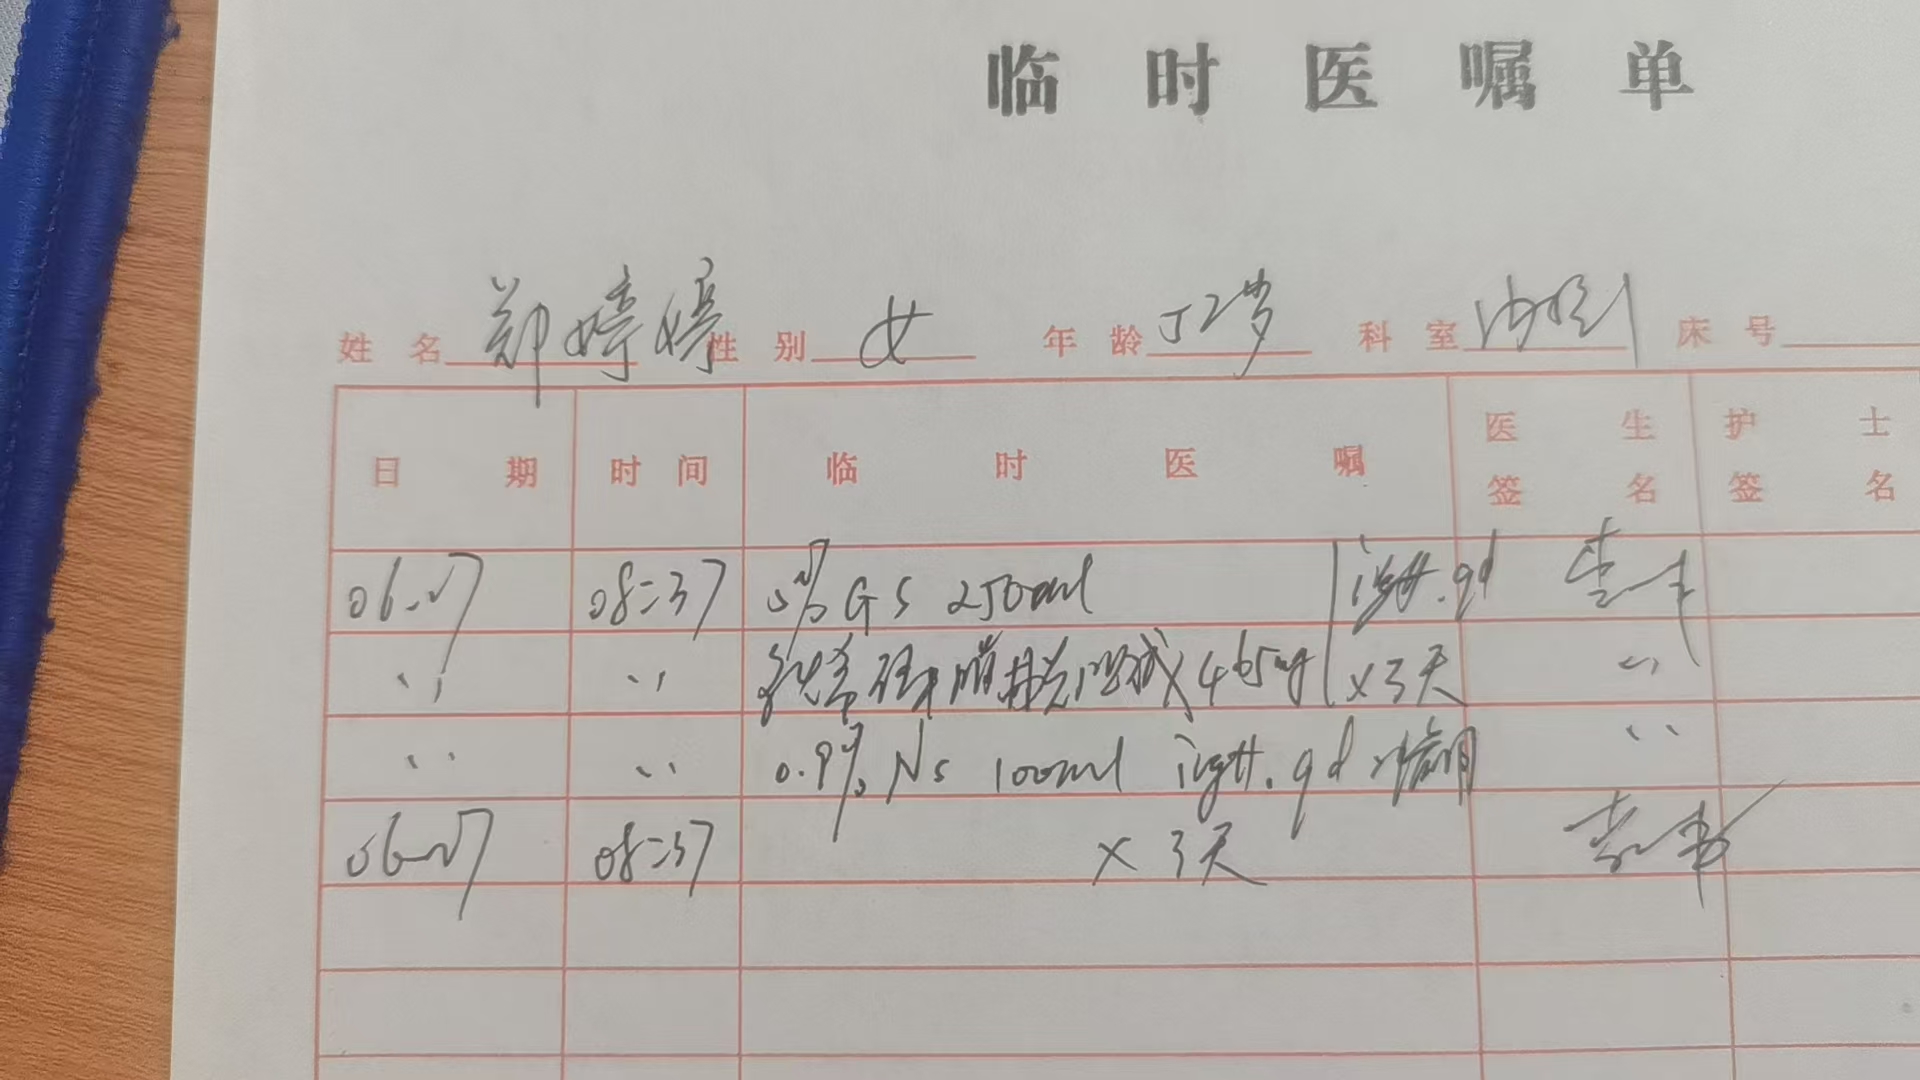 临时医嘱单
姓名 郑婷婷 性别 女 年龄 52岁 科室 内 床号
日期 时间 临时医嘱 医生签名 护士签名
06-27 08:37 5% GS 250ml ivgtt.qd
〃 〃 465mg ×3天 〃
〃 〃 0.9% NS 100ml ivgtt.qd 〃
06-27 08:37 ×3天